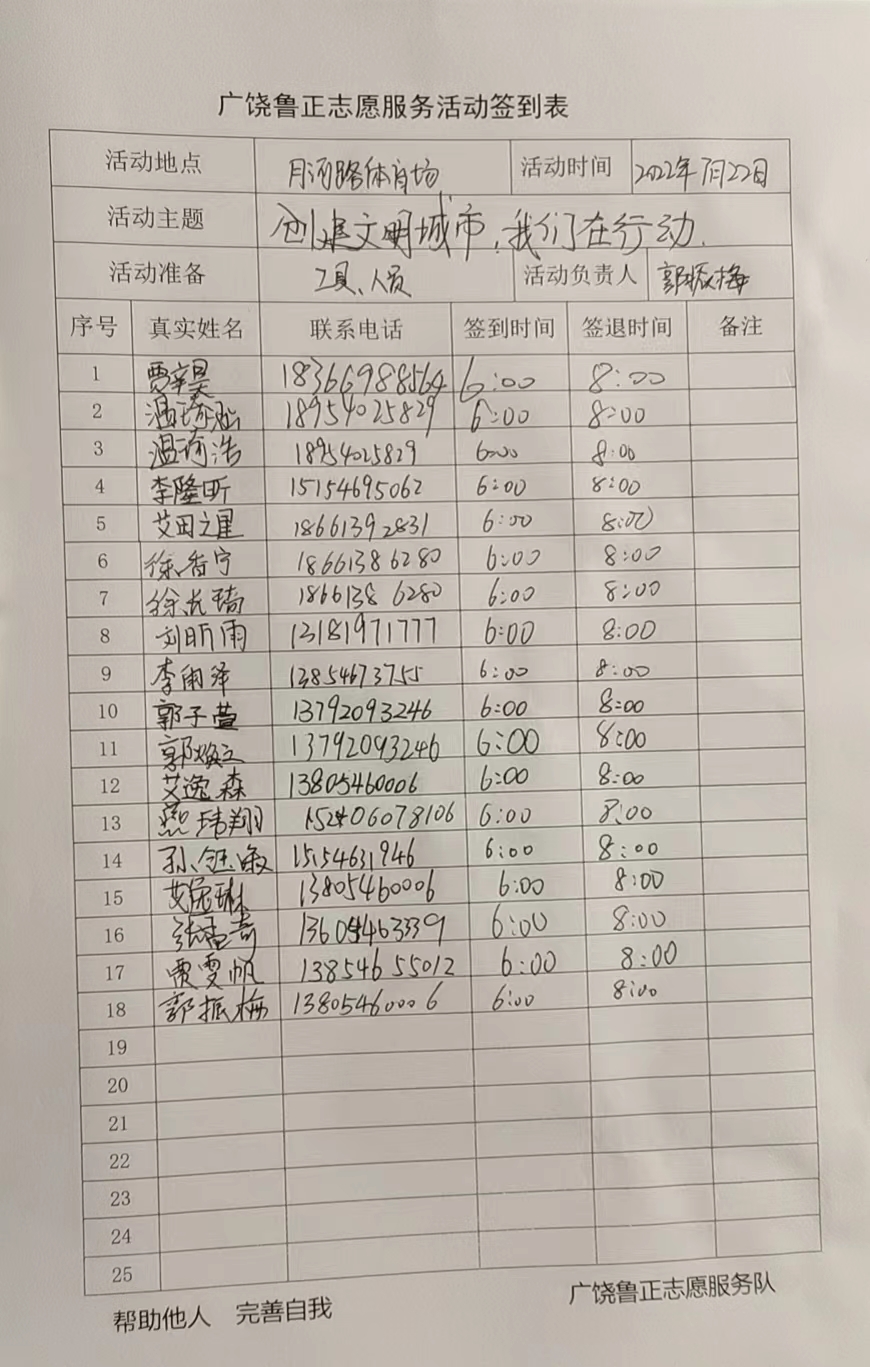 广饶鲁正志愿服务活动签到表
活动地点 月河路体育场 活动时间 2022年7月22日
活动主题 创建文明城市,我们在行动.
活动准备 工具、人员 活动负责人 郭振梅
序号 真实姓名 联系电话 签到时间 签退时间 备注
1 贾辛昊 18366988564 6:00 8:00
2 18954025829 6:00 8:00
3 温琦浩 18954025829 6:00 8:00
4 李隆昕 15154695062 6:00 8:00
5 艾田之星 18661392831 6:00 8:00
6 徐香宁 18661386280 6:00 8:00
7 徐长琦 18661386280 6:00 8:00
8 刘昕雨 13181971777 6:00 8:00
9 李雨泽 13854673755 6:00 8:00
10 郭子萱 13792093246 6:00 8:00
11 13792093246 6:00 8:00
12 艾逸森 13805460006 6:00 8:00
13 燕玮翔 15206078106 6:00 8:00
14 15154631946 6:00 8:00
15 艾逸琳 13805460006 6:00 8:00
16 13605463339 6:00 8:00
17 贾雯帆 13854655012 6:00 8:00
18 郭振梅 13805460006 6:00 8:00
19
20
21
22
23
24
25
帮助他人 完善自我 广饶鲁正志愿服务队